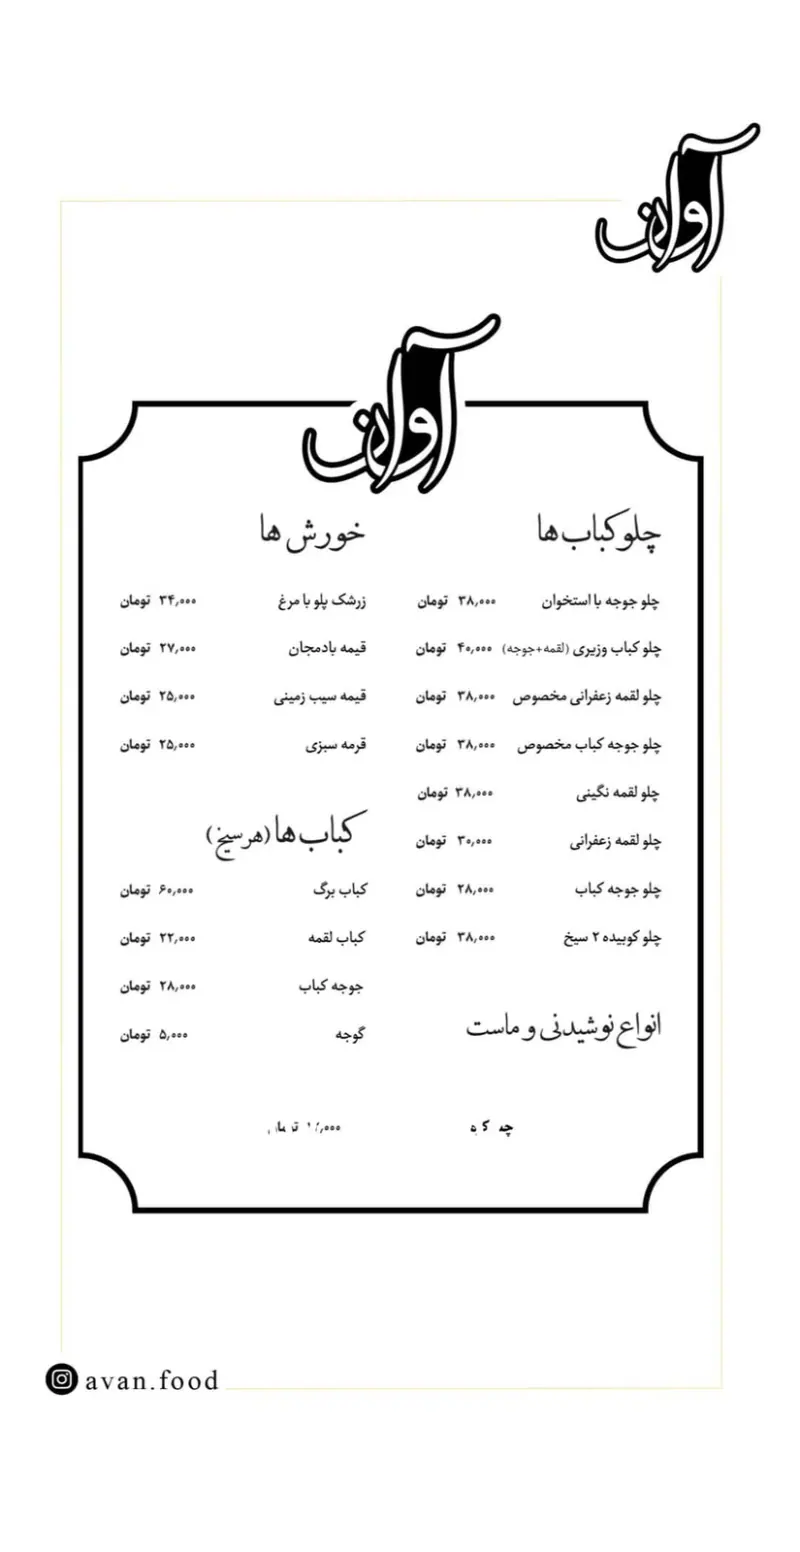 آوان
آوان
چلوکباب ها
چلو جوجه با استخوان ۳۸,۰۰۰ تومان
چلو کباب وزیری (لقمه+جوجه) ۴۰,۰۰۰ تومان
چلو لقمه زعفرانی مخصوص ۳۸,۰۰۰ تومان
چلو جوجه کباب مخصوص ۳۸,۰۰۰ تومان
چلو لقمه نگینی ۳۸,۰۰۰ تومان
چلو لقمه زعفرانی ۳۰,۰۰۰ تومان
چلو جوجه کباب ۲۸,۰۰۰ تومان
چلو کوبیده ۲ سیخ ۳۸,۰۰۰ تومان
انواع نوشیدنی و ماست
خورش ها
زرشک پلو با مرغ ۳۴,۰۰۰ تومان
قیمه بادمجان ۲۷,۰۰۰ تومان
قیمه سیب زمینی ۲۵,۰۰۰ تومان
قرمه سبزی ۲۵,۰۰۰ تومان
کباب ها (هر سیخ)
کباب برگ ۶۰,۰۰۰ تومان
کباب لقمه ۲۲,۰۰۰ تومان
جوجه کباب ۲۸,۰۰۰ تومان
گوجه ۵,۰۰۰ تومان
avan.food